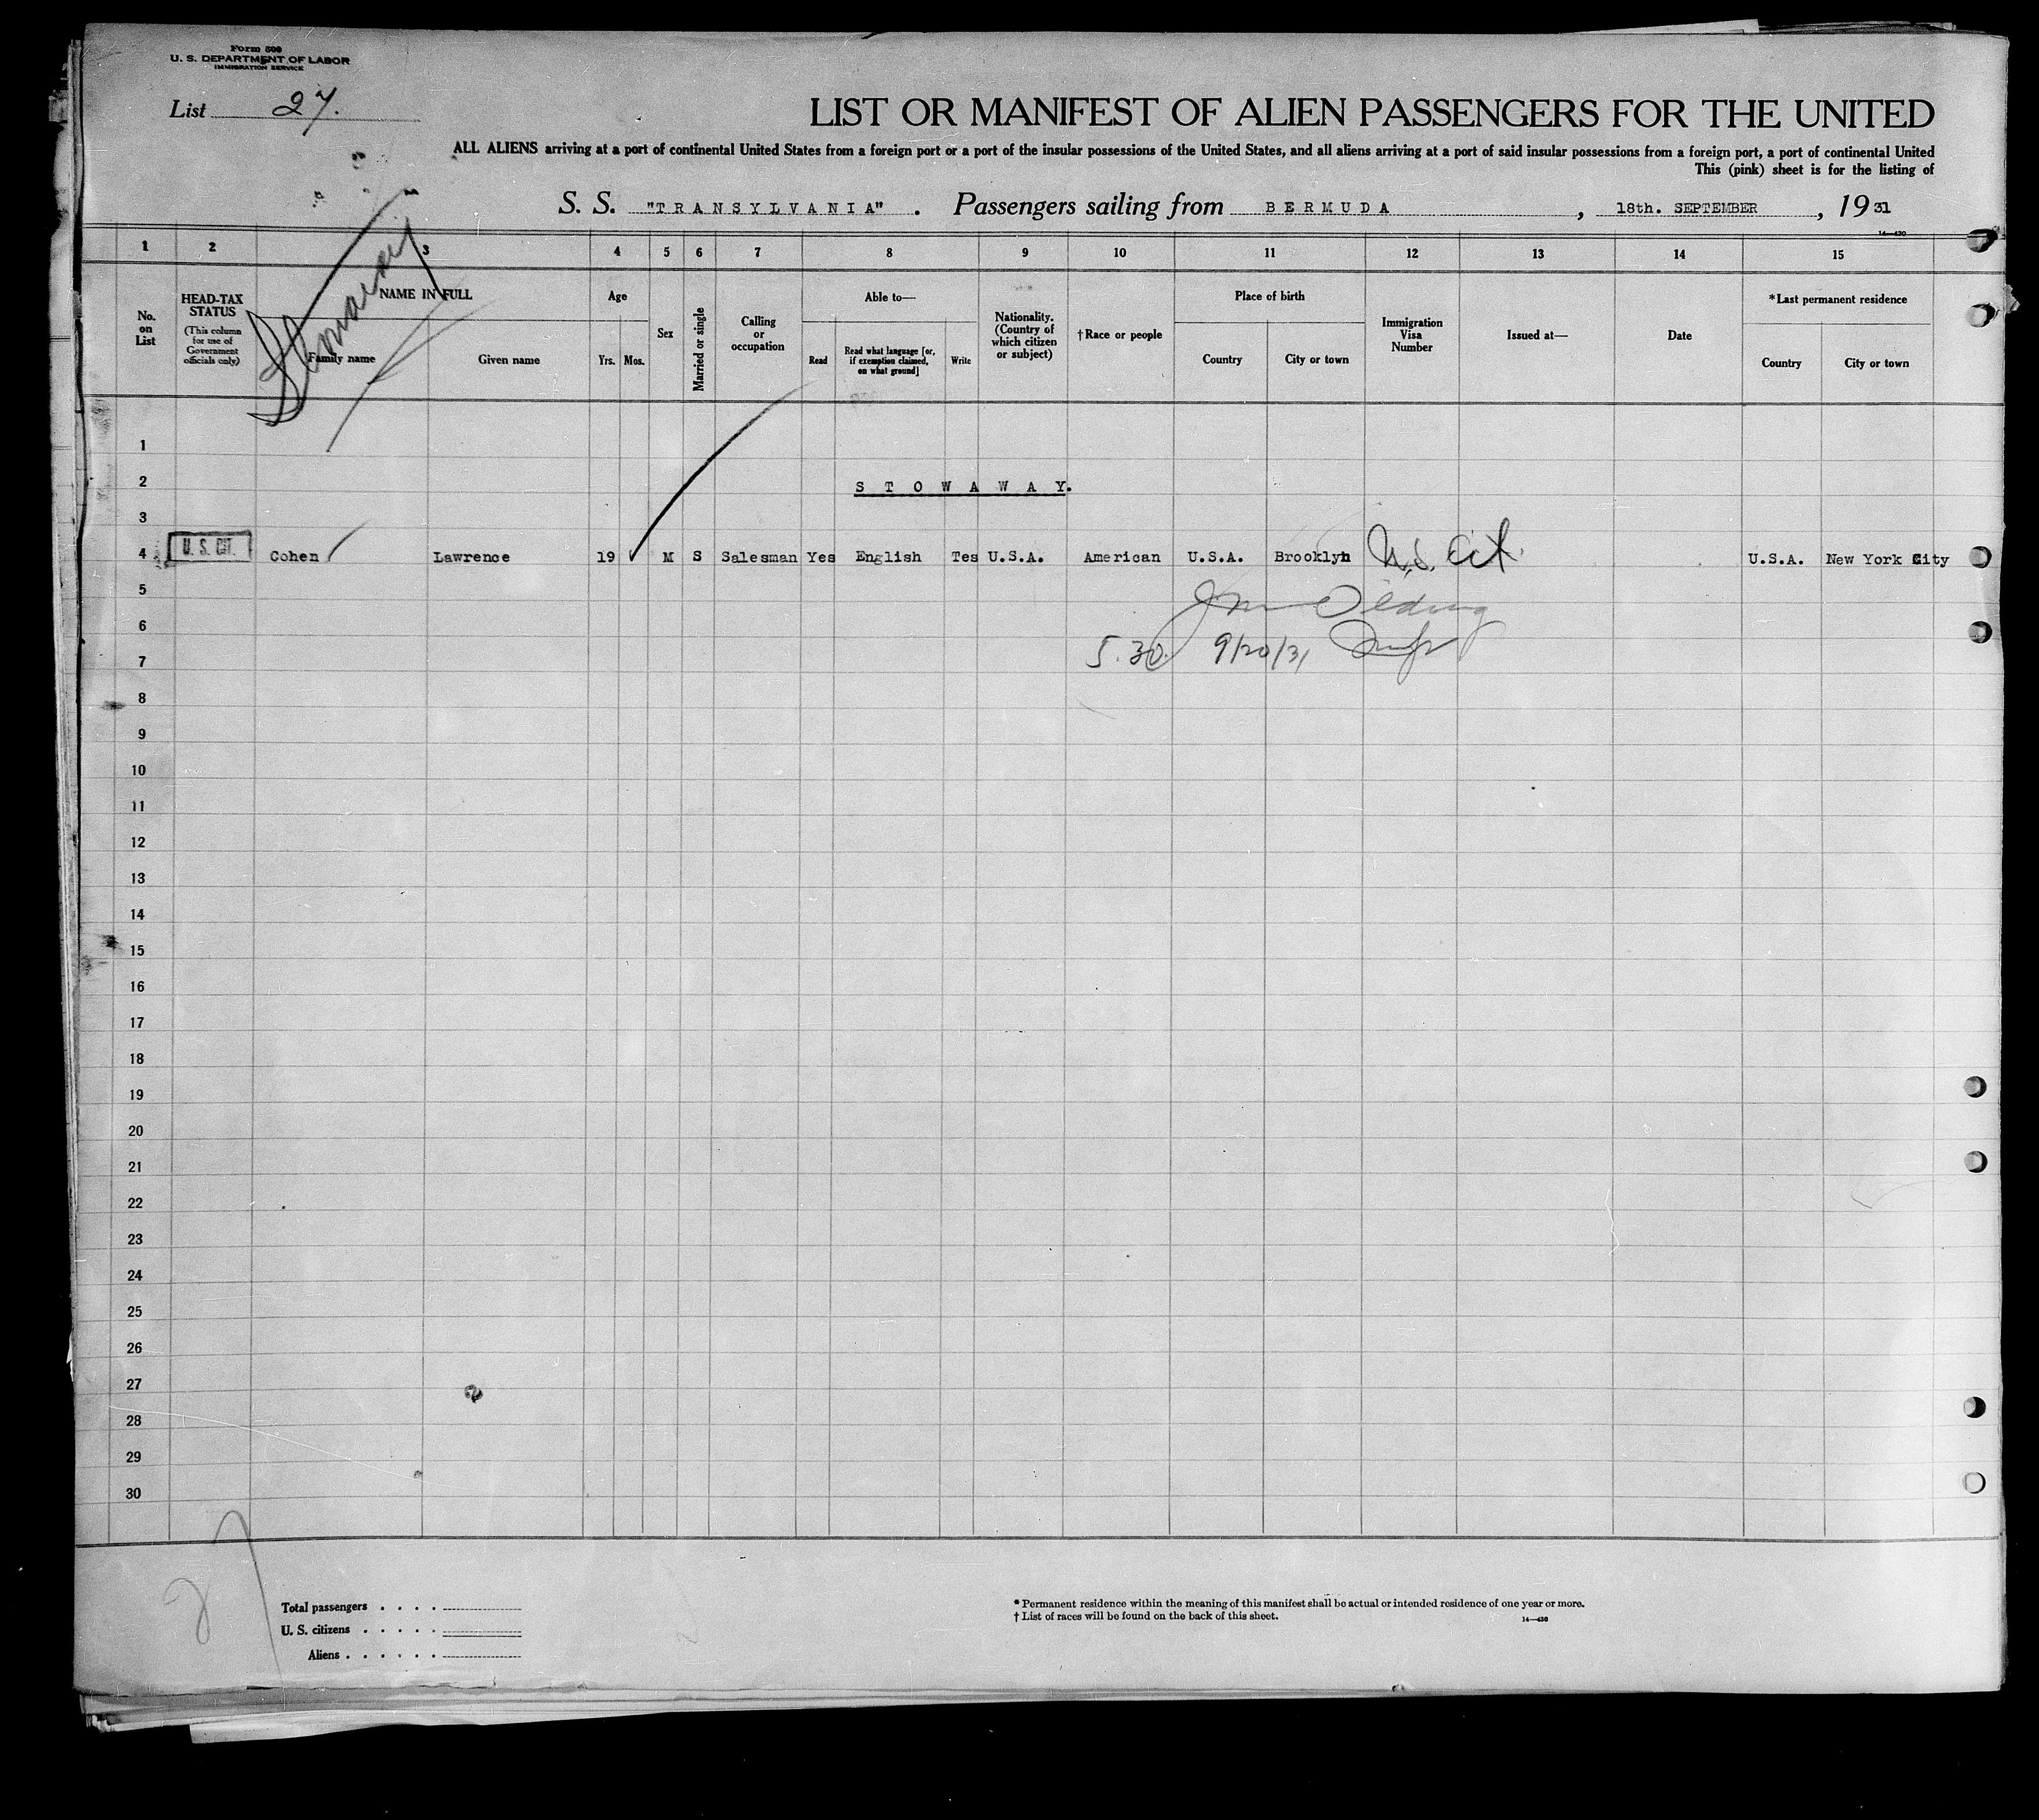 Form 500
U. S. DEPARTMENT OF LABOR
IMMIGRATION SERVICE
List 27.
LIST OR MANIFEST OF ALIEN PASSENGERS FOR THE UNITED
ALL ALIENS arriving at a port of continental United States from a foreign port or a port of the insular possessions of the United States, and all aliens arriving at a port of said insular possessions from a foreign port, a port of continental United
This (pink) sheet is for the listing of
S. S. "TRANSYLVANIA" . Passengers sailing from BERMUDA , 18th. SEPTEMBER , 1931
14—430
1 2 3 4 5 6 7 8 9 10 11 12 13 14 15
No. on List
HEAD-TAX STATUS
(This column for use of Government officials only)
NAME IN FULL
Family name Given name
Age
Yrs. Mos.
Sex
Married or single
Calling or occupation
Able to—
Read Read what language [or, if exemption claimed, on what ground] Write
Nationality. (Country of which citizen or subject)
†Race or people
Place of birth
Country City or town
Immigration Visa Number
Issued at—
Date
*Last permanent residence
Country City or town
1
2 S T O W A W A Y.
3
4 U. S. CIT. Cohen Lawrence 19 M S Salesman Yes English Tes U.S.A. American U.S.A. Brooklyn U.S. Cit. U.S.A. New York City
5
6
7 5.30 9/20/31 Insp
8
9
10
11
12
13
14
15
16
17
18
19
20
21
22
23
24
25
26
27
28
29
30
27
Total passengers . . . .
U. S. citizens . . . . .
Aliens . . . . . .
* Permanent residence within the meaning of this manifest shall be actual or intended residence of one year or more.
† List of races will be found on the back of this sheet.
14—430